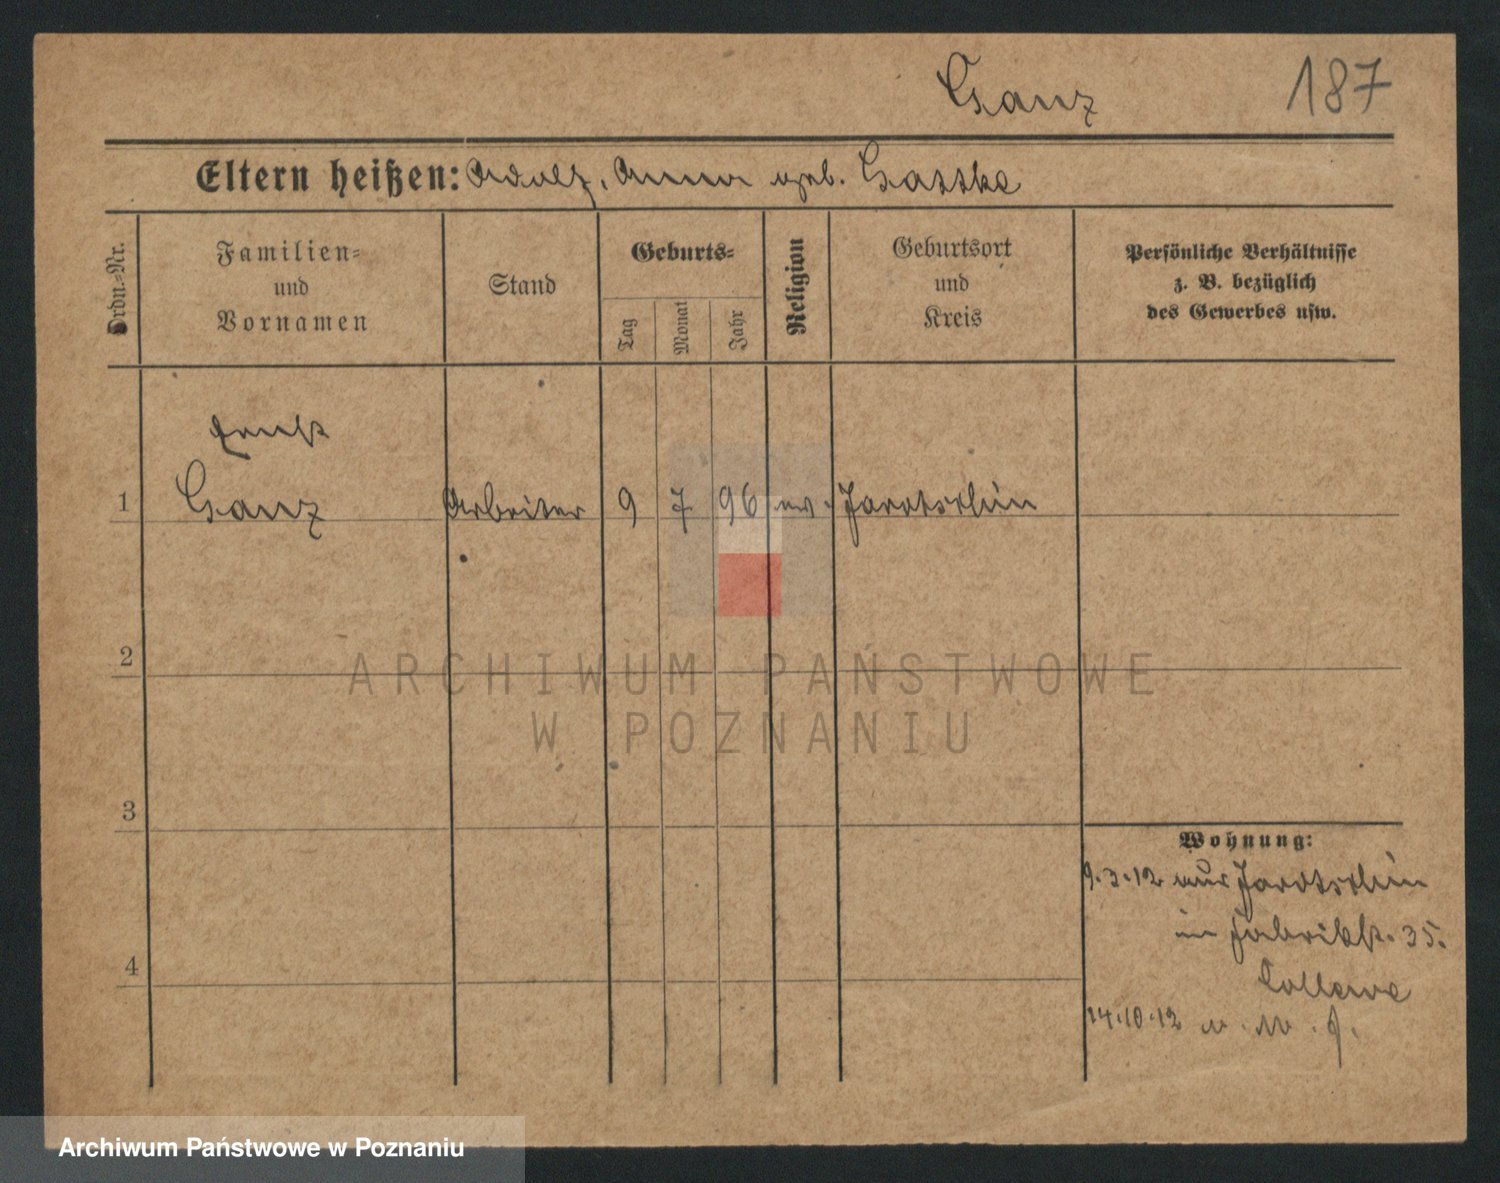 Ganz 187
Eltern heißen: Adolf, Anna geb.
Ordn.-Nr.
Familien-
und
Vornamen
Stand
Geburts-
Tag
Monat
Jahr
Religion
Geburtsort
und
Kreis
Persönliche Verhältnisse
z. B. bezüglich
des Gewerbes usw.
Ernst
1 Ganz Arbeiter 9 7 96 ev. Jarotschin
2
3
4
Wohnung:
9.3.12 aus Jarotschin
in Fabrikst. 35.
14.10.12
ARCHIWUM PAŃSTWOWE
W POZNANIU
Archiwum Państwowe w Poznaniu